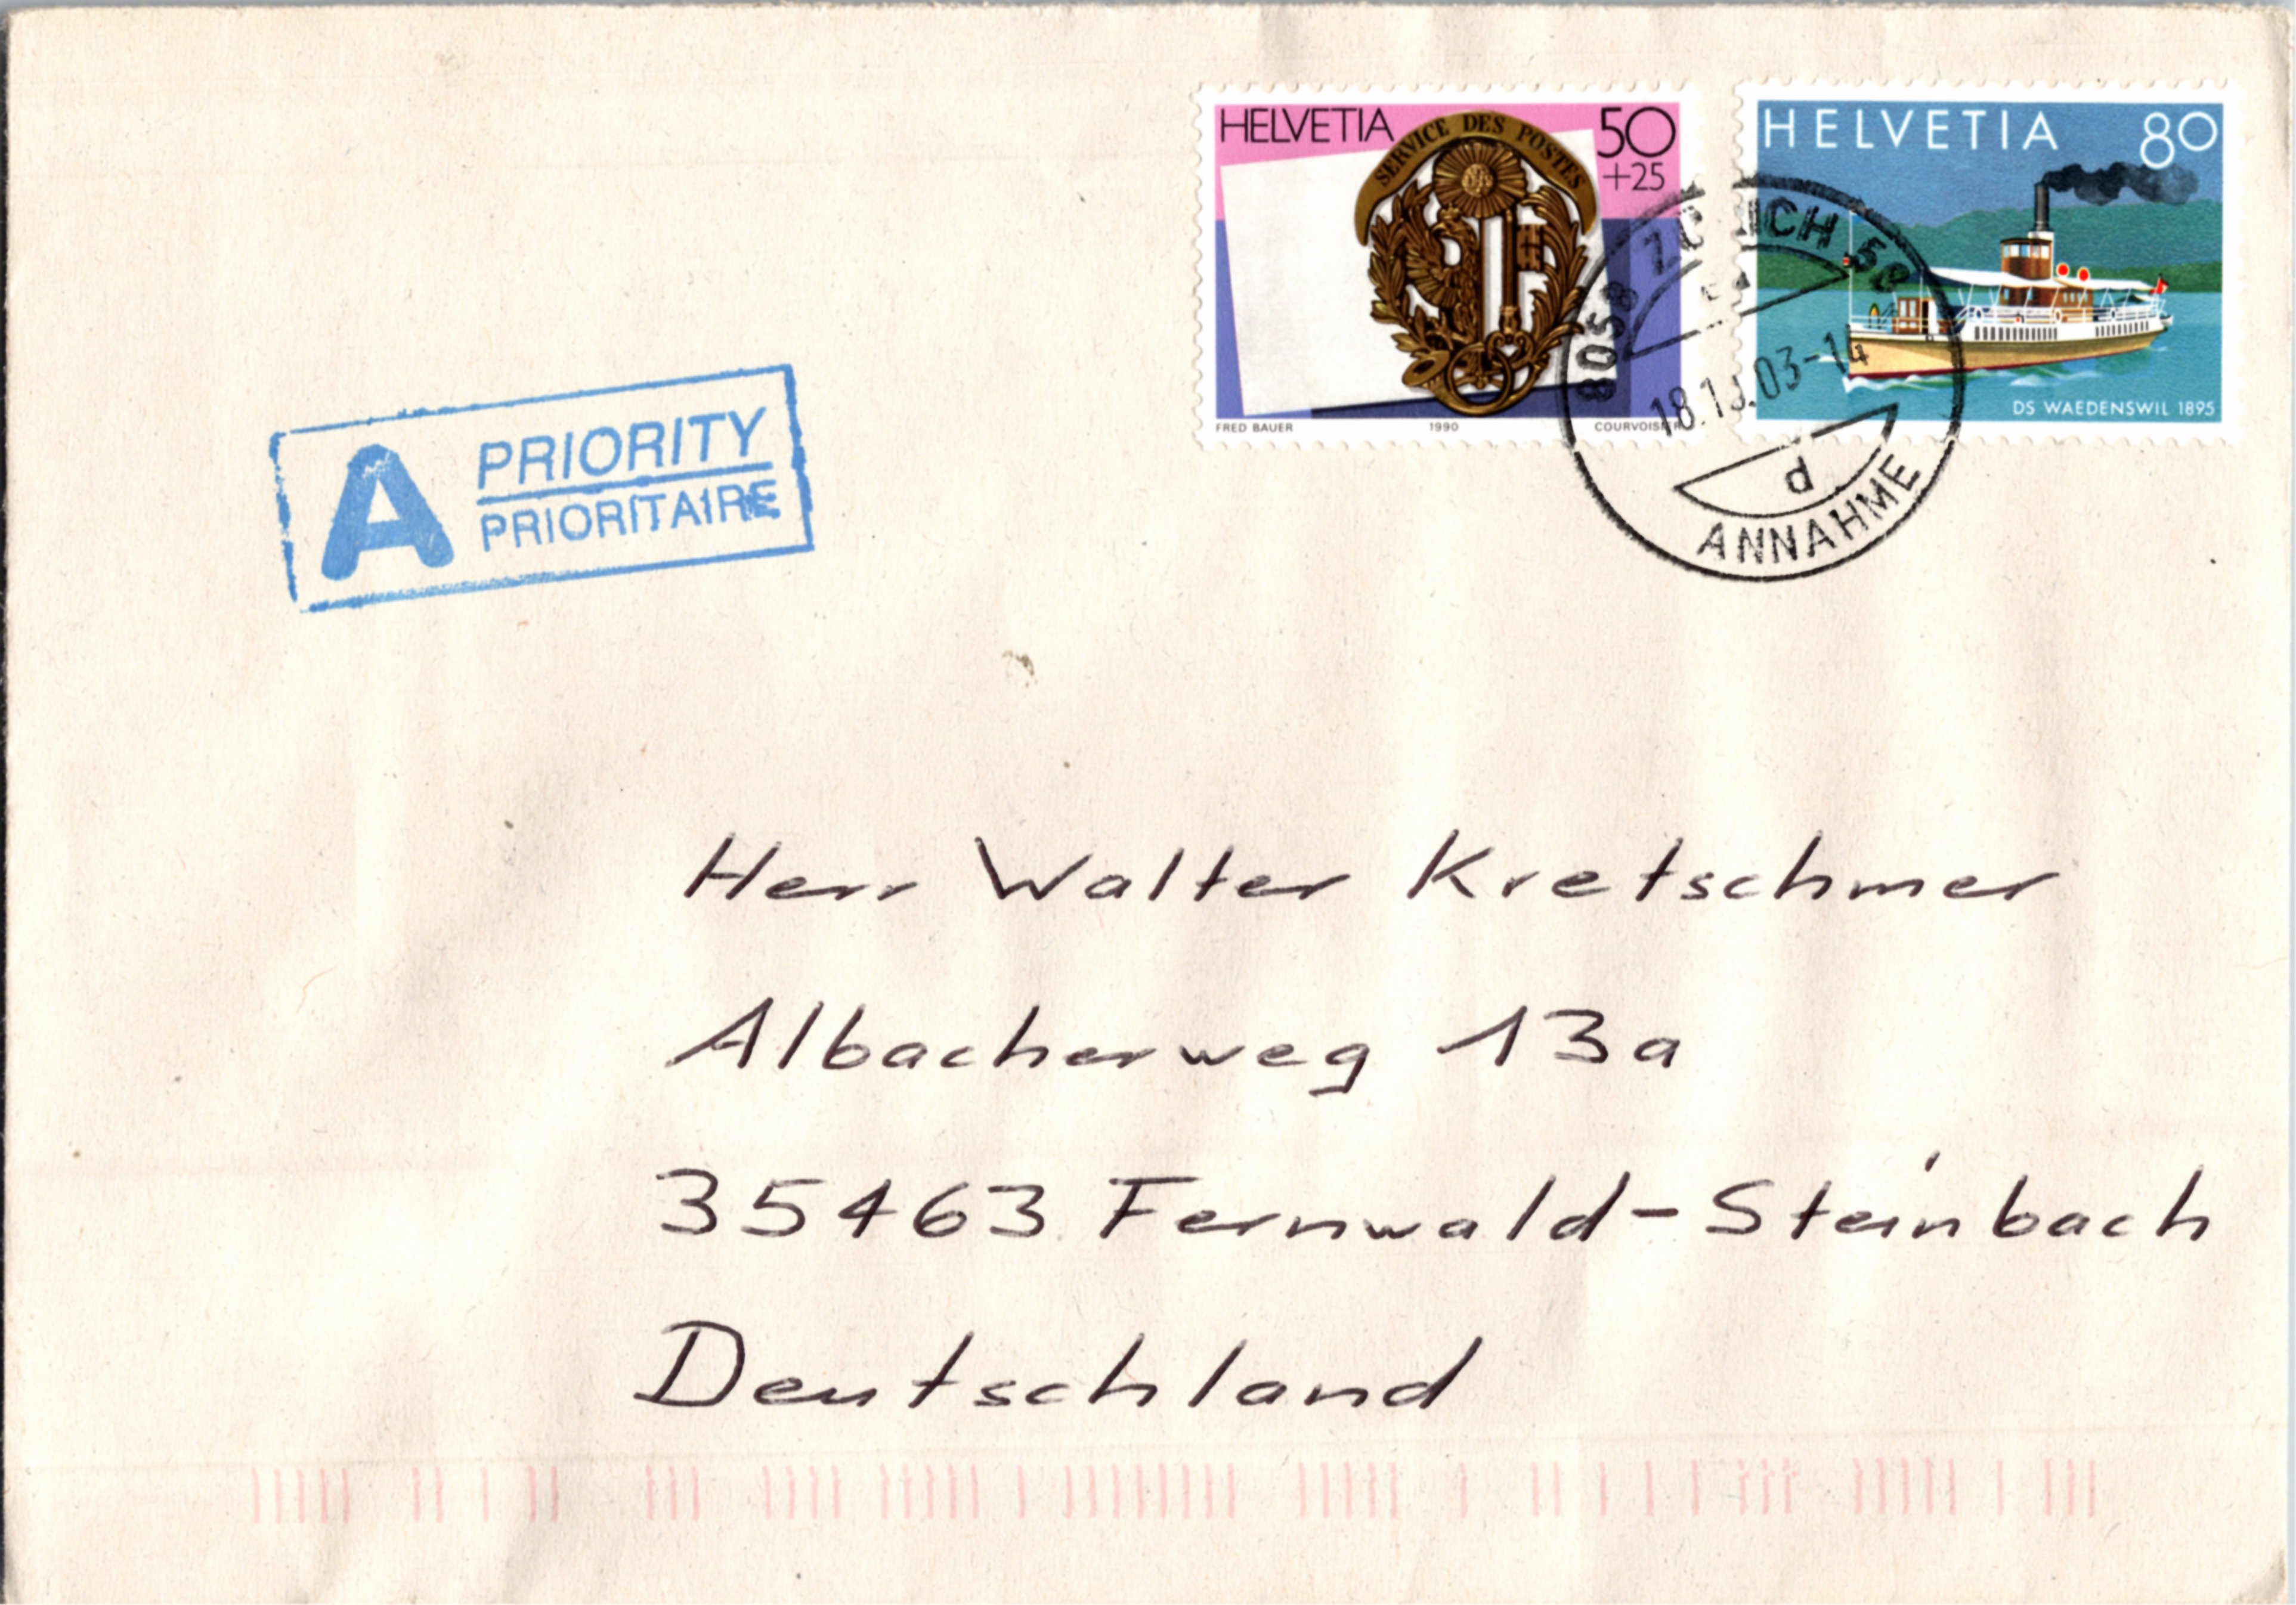 HELVETIA 50
+25
SERVICE DES POSTES
FRED BAUER 1990 COURVOISIER
HELVETIA 80
DS WAEDENSWIL 1895
8058 ZÜRICH 58
03-14
d
ANNAHME
A PRIORITY
PRIORITAIRE
Herr Walter Kretschmer
Albacherweg 13a
35463 Fernwald-Steinbach
Deutschland